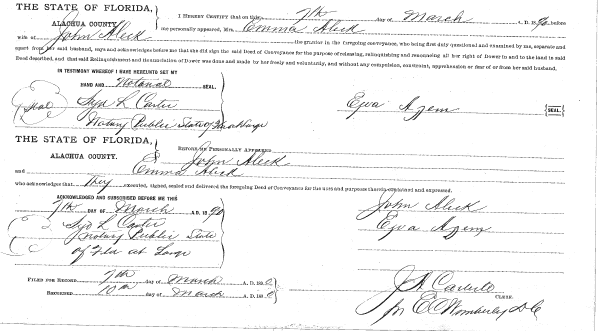 THE STATE OF FLORIDA,
ALACHUA COUNTY.
I HEREBY CERTIFY that on this 7th day of March A. D. 18 before
me personally appeared, Mrs. Emma Aleck
wife of John Aleck the grantor in the foregoing conveyance, who being first duly questioned and examined by me, separate and
apart from her said husband, says and acknowledges before me that she did sign the said Deed of Conveyance for the purpose of releasing, relinquishing and renouncing all her right of Dower in and to the land in said
Deed described, and that said Relinquishment and Renunciation of Dower was done and made by her freely and voluntarily, and without any compulsion, constraint, apprehension or fear of or from her said husband.
IN TESTIMONY WHEREOF I HAVE HEREUNTO SET MY
HAND AND Notarial SEAL,
Seal
Syd L Carter
Notary Public State of Fla at Large
(SEAL.)
THE STATE OF FLORIDA,
ALACHUA COUNTY.
BEFORE ME PERSONALLY APPEARED
John Aleck
and Emma Aleck
who acknowledges that They executed, signed, sealed and delivered the foregoing Deed of Conveyance for the uses and purposes therein contained and expressed.
ACKNOWLEDGED AND SUBSCRIBED BEFORE ME THIS
7th DAY OF March A. D. 18
John Aleck
Syd L Carter
Notary Public State
of Fla at Large
FILED FOR RECORD 7th day of March A. D. 18
RECORDED 10th day of March A. D. 18
J A Carlisle
CLERK.
for E C Womberley D C